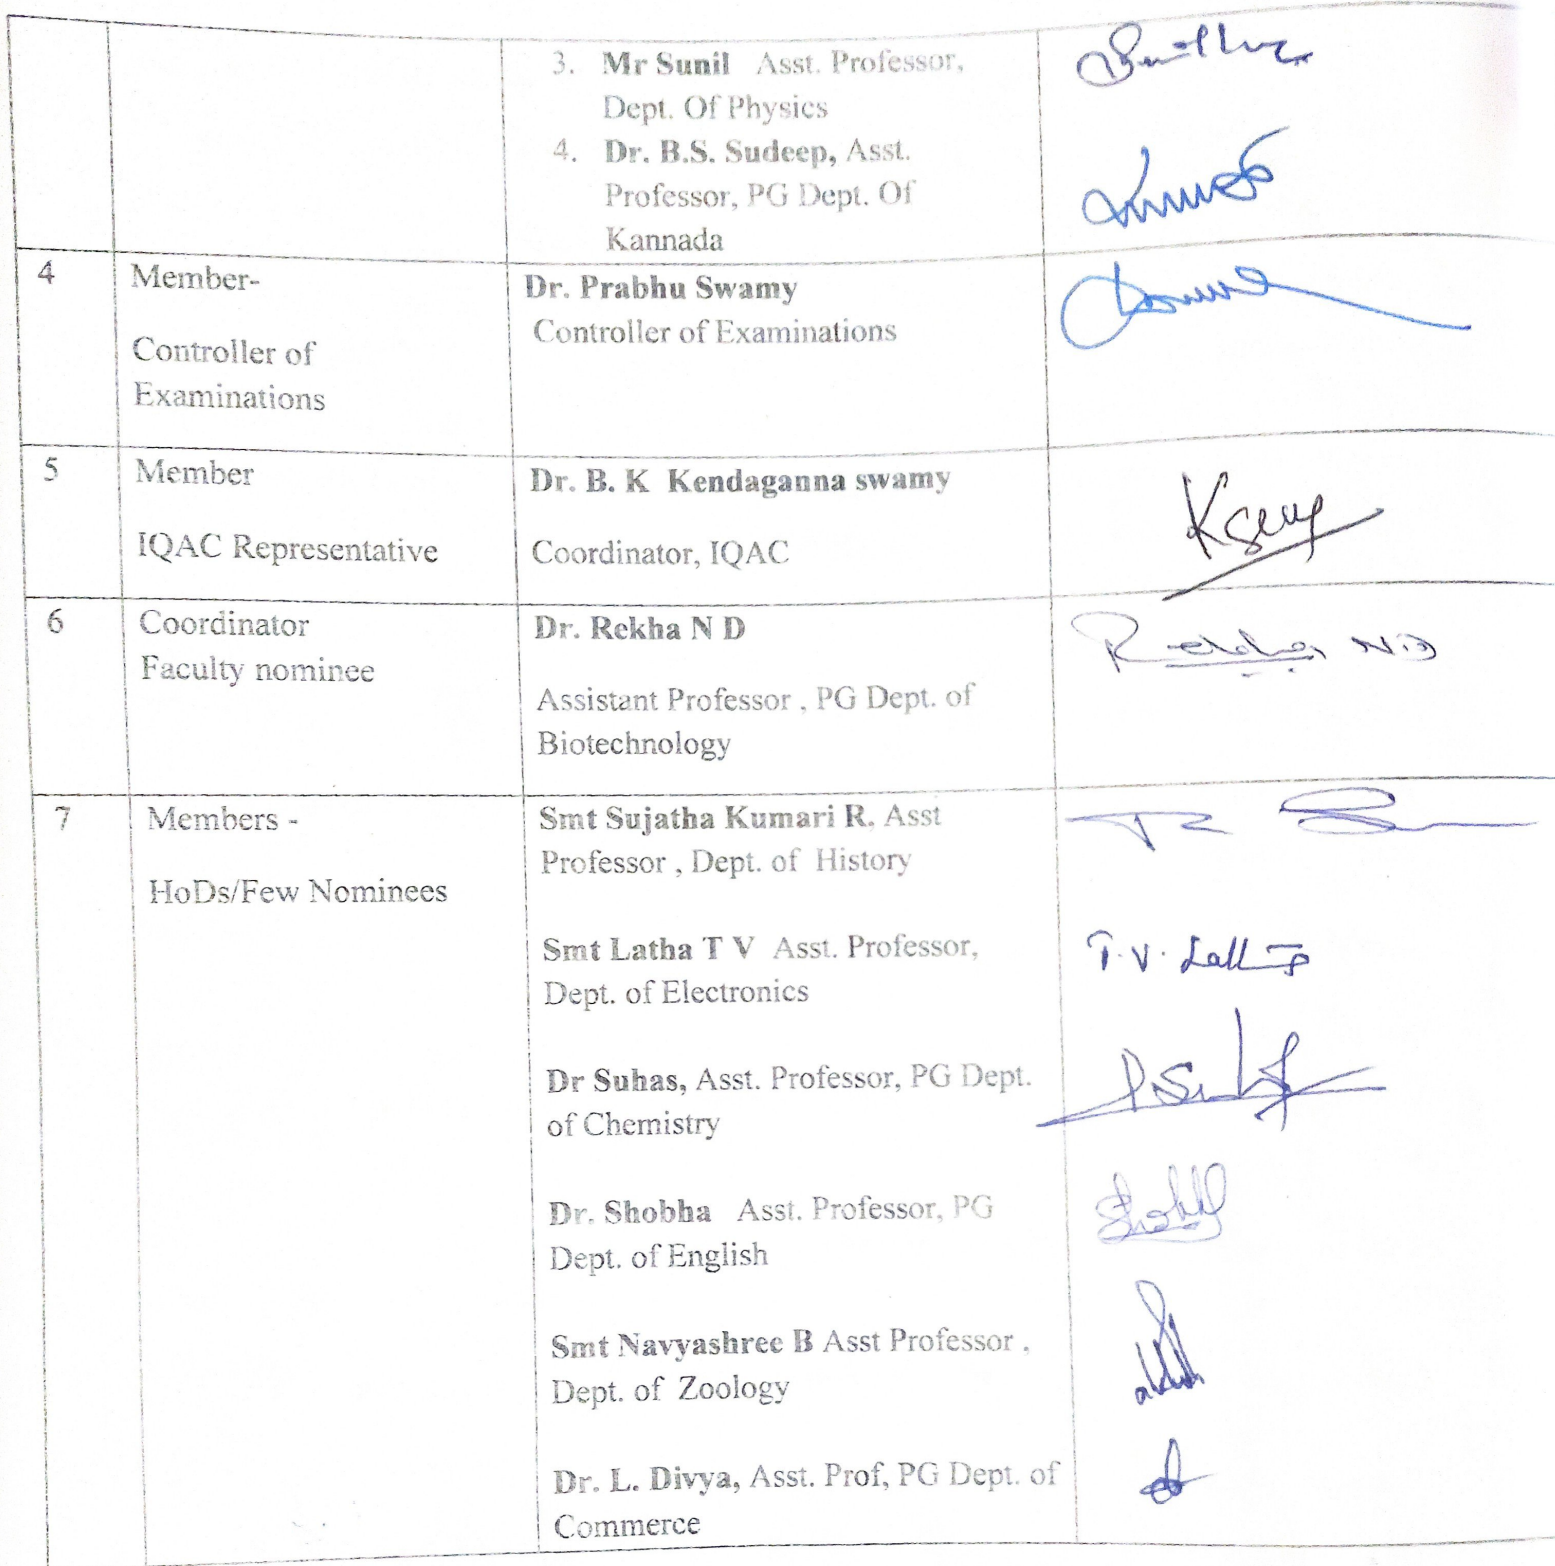 3. Mr Sunil Asst. Professor,
Dept. Of Physics
4. Dr. B.S. Sudeep, Asst.
Professor, PG Dept. Of
Kannada
4
Member-
Controller of
Examinations
Dr. Prabhu Swamy
Controller of Examinations
5
Member
IQAC Representative
Dr. B. K Kendaganna swamy
Coordinator, IQAC
6
Coordinator
Faculty nominee
Dr. Rekha N D
Assistant Professor , PG Dept. of
Biotechnology
Rekha N.D
7
Members -
HoDs/Few Nominees
Smt Sujatha Kumari R. Asst
Professor , Dept. of History
Smt Latha T V Asst. Professor,
Dept. of Electronics
T.V. Latha
Dr Suhas, Asst. Professor, PG Dept.
of Chemistry
Dr. Shobha Asst. Professor, PG
Dept. of English
Shobha
Smt Navyashree B Asst Professor ,
Dept. of Zoology
Dr. L. Divya, Asst. Prof, PG Dept. of
Commerce